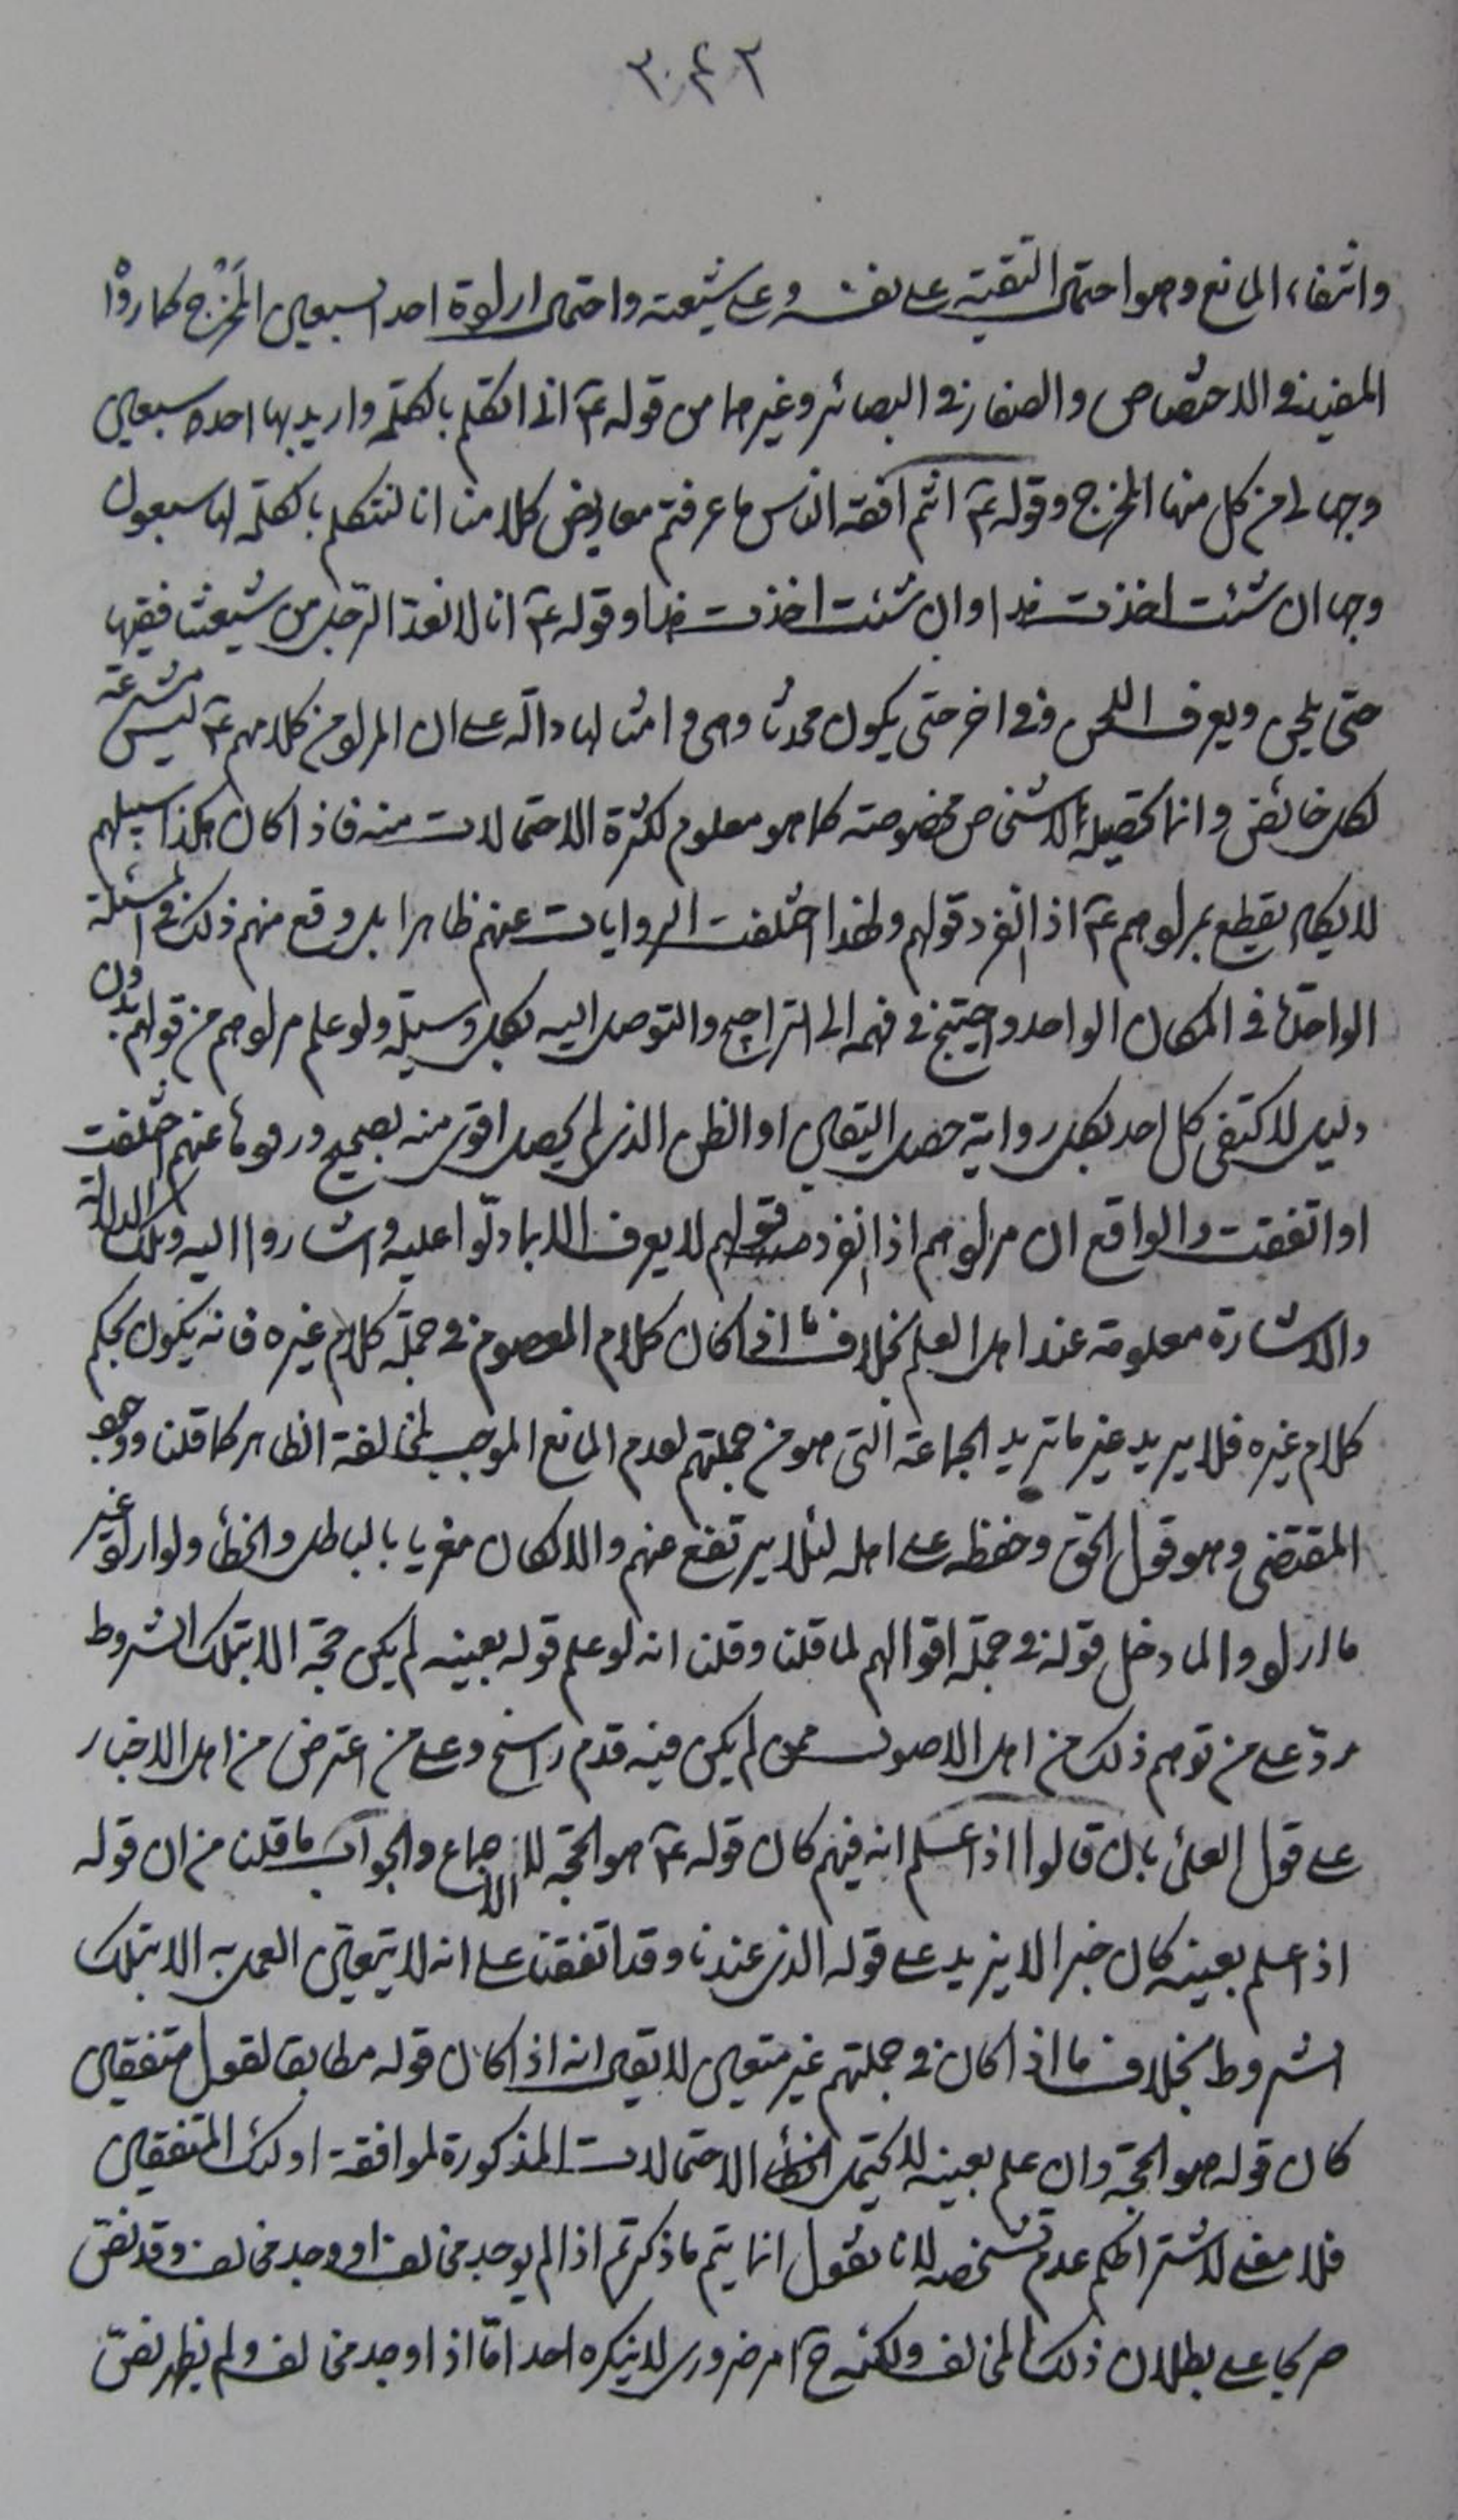 ٣٠٤٢
وانتفاء المانع وهو احتمال التقية على نفسه وعلى شيعته واحتمال ارادة احد السبعين المخرج كما رووا
المفيد في الاختصاص والصفار في البصائر وغيرهما من قوله ع انى اتكلم بالكلمة واريد بها احد سبعين
وجها لى من كل منها المخرج وقوله ع انتم افقه الناس ما عرفتم معاريض كلامنا انا لنتكلم بالكلمة لها سبعون
وجها ان شئت اخذت هذا وان شئت اخذت هذا وقوله ع انا لا نعد الرجل من شيعتنا فقيها
حتى يلحن ويعرف اللحن وفي اخر حتى يكون محدثا وهي وامثالها دالة على ان المراد من كلامهم ع ليس مشرعة
لكل خائض وانما تحصيله للاشخاص مخصوصة كما هو معلوم لكثرة الاحتمالات منه فاذا كان هكذا سبيلهم
لا يكاد يقطع بمرادهم ع اذا انفرد قولهم ولهذا اختلفت الروايات عنهم ظاهرا بل وقع منهم ذلك في المسئلة
الواحدة في المكان الواحد واحتيج في فهمه الى التراجيح والتوصل اليه بكل وسيلة ولو علم مرادهم من قولهم بدون
دليل لاكتفى كل احد بكل رواية حصل اليقين او الظن الذي لم يحصل اقوى منه بصحيح ورودها عنهم اختلفت
او اتفقت والواقع ان مرادهم اذا انفرد قولهم لا يعرف الا بما دلوا عليه واشاروا اليه وتلك الدلالة
والاشارة معلومة عند اهل العلم بخلاف ما اذا كان كلام المعصوم في جملة كلام غيره فانه يكون بحكم
كلام غيره فلا يريد غير ما تريد الجماعة التي هو من جملتهم لعدم المانع الموجب لمخالفة الظاهر كما قلنا ووجود
المقتضى وهو قول الحق وحفظه على اهله لئلا يرتفع منهم والا لكان مغريا بالباطل والخطأ ولو اراد غير
ما ارادوا لما دخل قوله في جملة اقوالهم لما قلنا وقلنا انه لو علم قوله بعينه لم يكن حجة الا بتلك الشروط
رد على من توهم ذلك من اهل الاصول ممن لم يكن فيه قدم راسخ وعلى من اعترض من اهل الاخبار
على قول العلماء بان قالوا اذا علم انه فيهم كان قوله ع هو الحجة لا الاجماع والجواب ما قلنا من ان قوله
اذا علم بعينه كان خبرا لا يزيد على قوله الذي عندنا وقد اتفقنا على انه لا يتعين العمل به الا بتلك
الشروط بخلاف ما اذا كان في جملتهم غير متعين لا يقال انه اذا كان قوله مطابقا لقول متفقين
كان قوله هو الحجة وان علم بعينه لا يحتمل الاحتمالات المذكورة لموافقة اولئك المتفقين
فلا معنى لاشتراطكم عدم تشخصه لانا نقول انما يتم ما ذكرتم اذا لم يوجد مخالف او وجد مخالف وقد نص
صريحا على بطلان ذلك المخالف ولكنه ح امر ضروري لا ينكره احد اما اذا وجد مخالف ولم يظهر نص